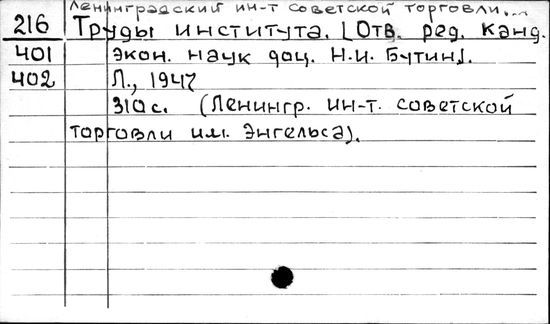 Ленинградский ин-т советской торговли...
216 Труды института. [Отв. ред. канд.
401 экон. наук доц. Н.И. Бутин].
402 Л., 1947
310 с. (Ленингр. ин-т. советской
торговли им. Энгельса).